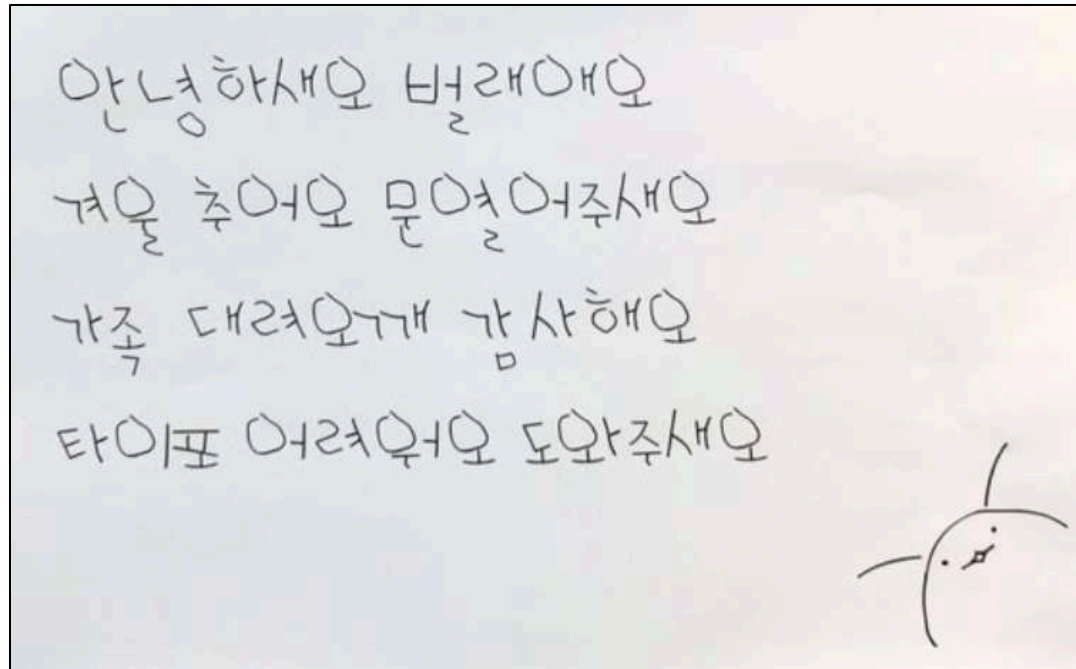 안녕하새오 벌래애오
겨울 추어오 문열어주새오
가족 대려오깨 감사해오
타이포 어려워오 도와주새오